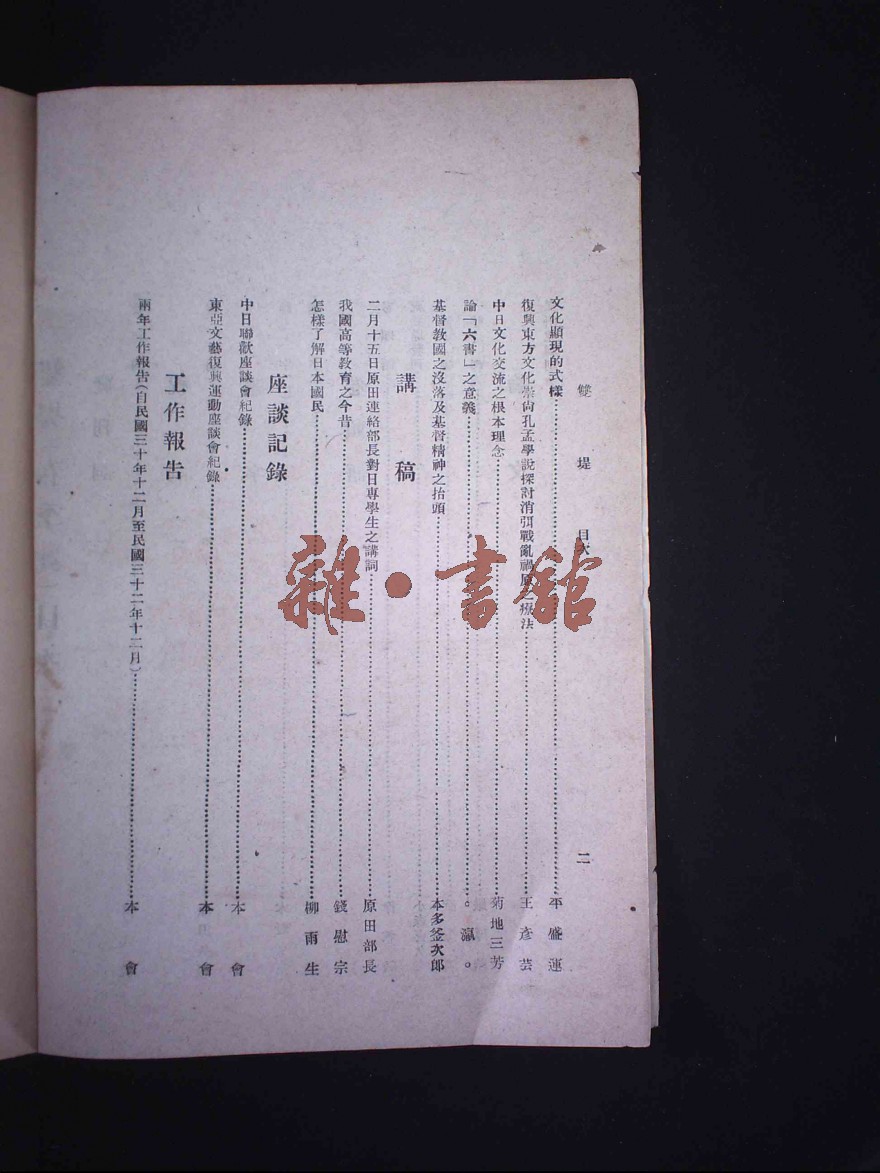 雙堤 目次 二
文化顯現的式樣 平盛運
復興東方文化崇尚孔孟學說探討消弭戰亂禍 療法 王彥芸
中日文化交流之根本理念 菊地三芳
論「六書」之意義 。瀛。
基督教國之沒落及基督精神之抬頭 本多釜次郎
講稿
二月十五日原田連絡部長對日專學生之講詞 原田部長
我國高等教育之今昔 錢慰宗
怎樣了解日本國民 柳雨生
座談記錄
中日聯歡座談會紀錄 本會
東亞文藝復興運動座談會紀錄 本會
工作報告
兩年工作報告(自民國三十年十二月至民國三十二年十二月) 本會
雜·書館